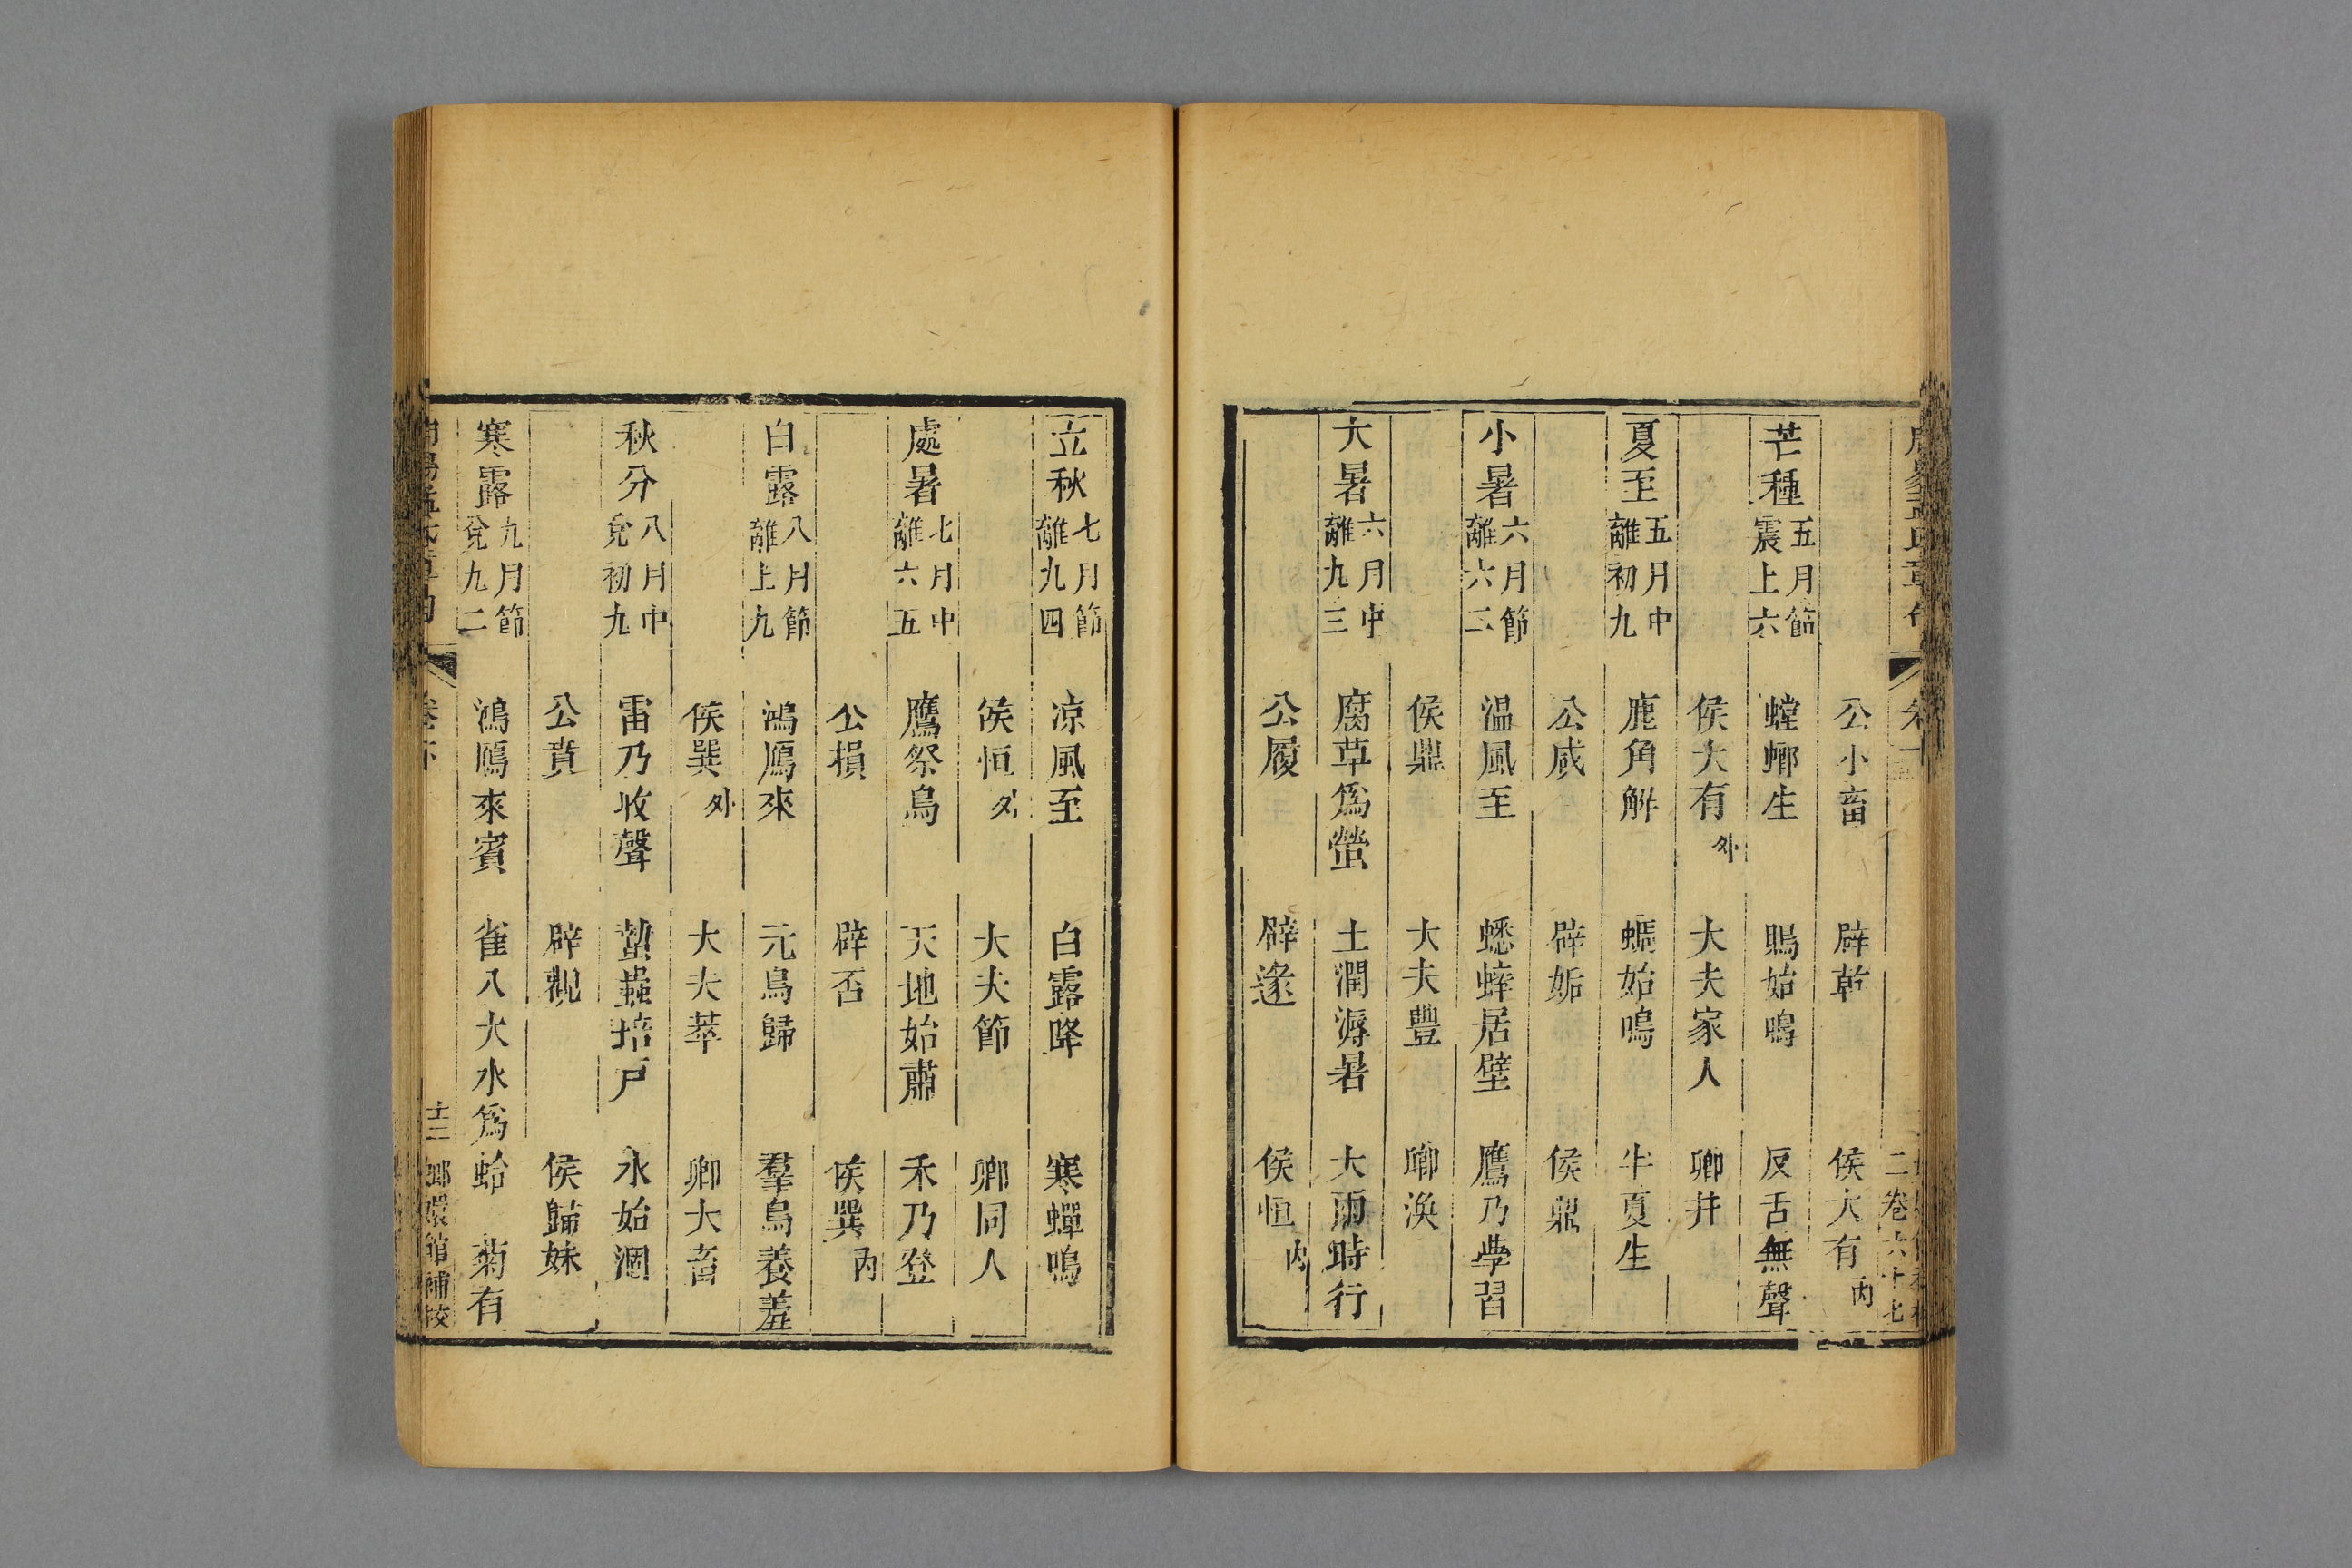 公小畜　辟乾　侯大有內
芒種五月節震上六　螳螂生　鵙始鳴　反舌無聲
侯大有外　大夫家人　卿井
夏至五月中離初九　鹿角解　蜩始鳴　半夏生
公咸　辟姤　侯鼎
小暑六月節離六二　温風至　蟋蟀居壁　鷹乃學習
侯鼎　大夫豐　卿渙
大暑六月中離九三　腐草爲螢　土潤溽暑　大雨時行
公履　辟遂　侯恒內
立秋七月節離九四　凉風至　白露降　寒蟬鳴
侯恒外　大夫節　卿同人
處暑七月中離六五　鷹祭鳥　天地始肅　禾乃登
公損　辟否　侯巽內
白露八月節離上九　鴻鴈來　元鳥歸　羣鳥養羞
侯巽外　大夫萃　卿大畜
秋分八月中兌初九　雷乃收聲　蟄蟲培戸　水始涸
公賁　辟觀　侯歸妹
寒露九月節兌九二　鴻鴈來賓　雀入大水爲蛤　菊有
十二　嫏嬛館補校